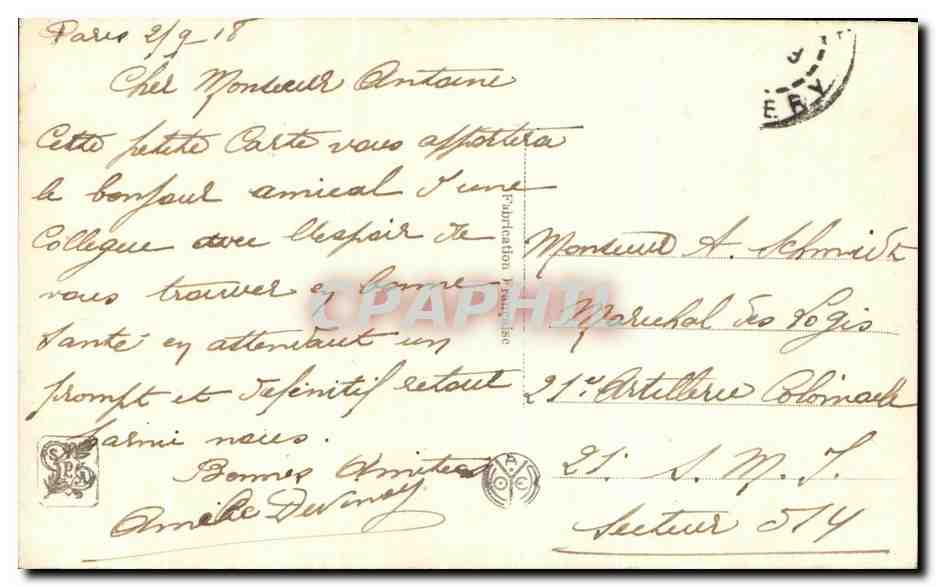 Paris 2/9 18
Cher Monsieur Antoine
Cette petite Carte vous apportera
le bonjour amical d'une
Collegue avec l'espoir de
vous trouver en bonne
Santé en attendant un
prompt et definitif retour
parmi nous.
Bonnes Amities
Amelie
Fabrication Française
Monsieur A. Schmidt
Marechal des Logis
21e Artillerie Coloniale
21. S. M. I.
Secteur 514
ERY
SPA
CPAPHIL